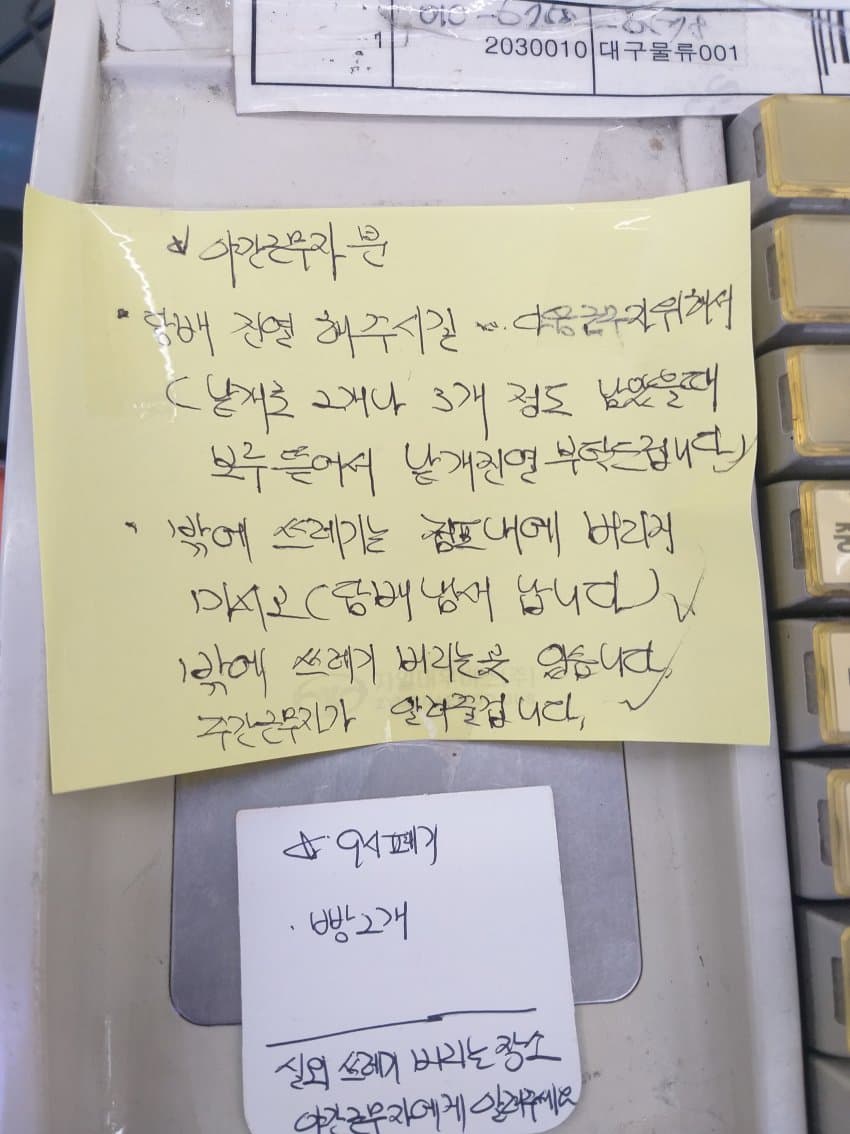 1
2030010 대구물류001
☆ 야간근무자 분
• 담배 진열 해주시길 ... 다음근무자위해서
( 낱개로 2개나 3개 정도 남았을때
보루 뜯어서 낱개진열 부탁드립니다)
• 밖에 쓰레기는 점포내에 버리지
마시오(담배냄새 납니다) ✓
밖에 쓰레기 버리는곳 있습니다.
주간근무자가 알려줄겁니다.
☆ 9시폐기
· 빵2개
실외 쓰레기 버리는 장소
야간근무자에게 알려주세요